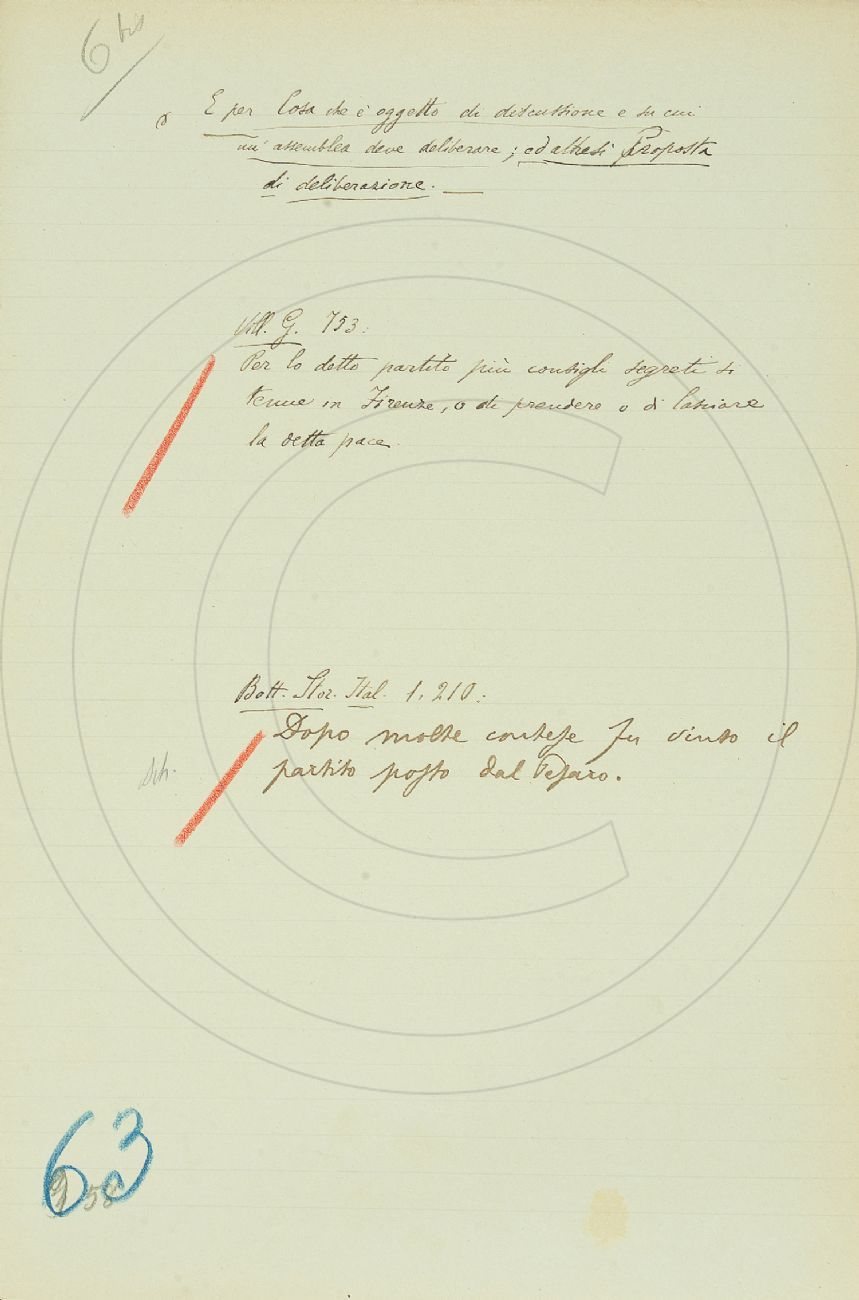 6 bis
E per Cosa che è oggetto di discussione e su cui
un' assemblea deve deliberare; ed altresì Proposta
di deliberazione. —
Vill. G. 753:
Per lo detto partito più consigli segreti si
tenne in Firenze, o di prendere o di lasciare
la detta pace.
Bott. Stor. Ital. 1. 210:
Dopo molte contese fu vinto il
partito posto dal Pesaro.
63